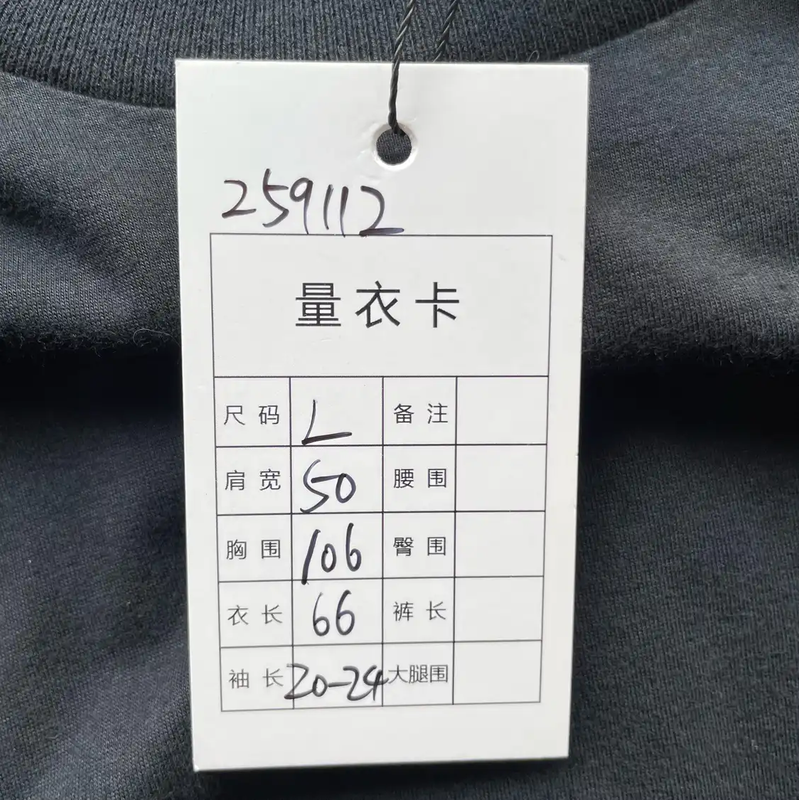 259112
量衣卡
尺码 L 备注
肩宽 50 腰围
胸围 106 臀围
衣长 66 裤长
袖长 20-24 大腿围